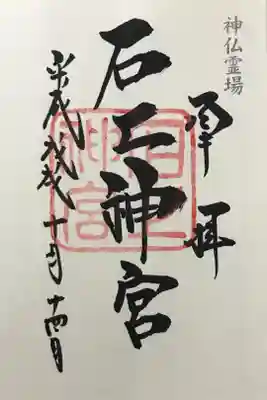 神仏霊場
奉拝
石上神宮
平成戊戌十月十四日
石上
神宮